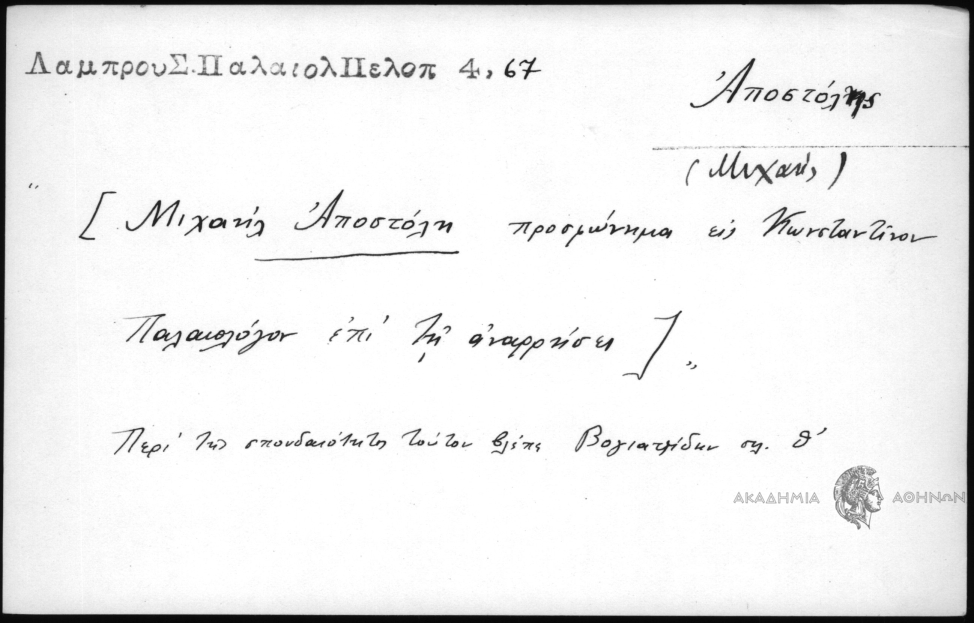 ΛαμπρουΣ.ΠαλαιολΠελοπ 4, 67
Ἀποστόλης
(Μιχαήλ)
" [ Μιχαήλ Ἀποστόλη προσφώνημα εἰς Κωνσταντῖνον
Παλαιολόγον ἐπὶ τῇ ἀναρρήσει ] "
Περὶ τῆς σπουδαιότητος τούτου βλέπε Βογιατζίδην σελ. θ'
ΑΚΑΔΗΜΙΑ ΑΘΗΝΩΝ